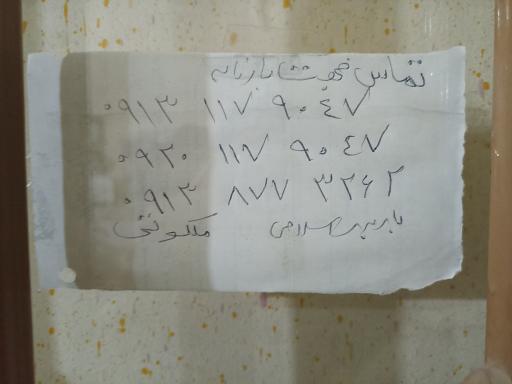 تماس جهت
۰۹۱۳ ۱۱۷ ۹۰۴۷
۰۹۲۰ ۱۱۷ ۹۰۴۷
۰۹۱۳ ۸۷۷ ۳۲۶۲
با مدیریت اسلامی ملکوتی